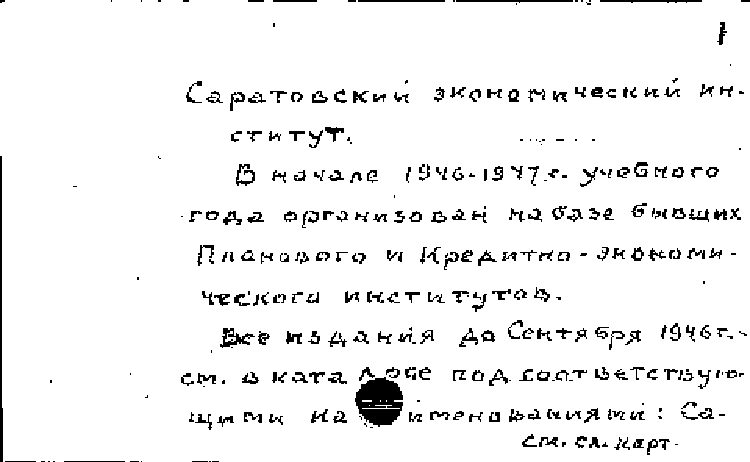 1
Саратовский экономический ин-
ститут.
В начале 1946-1947 г. учебного
года организован на базе бывших
Планового и Кредитно-экономи-
ческого институтов.
Все издания до Сентября 1946 г.-
см. в каталоге под соответствую-
щими на именованиями: Са-
см. сл. карт.